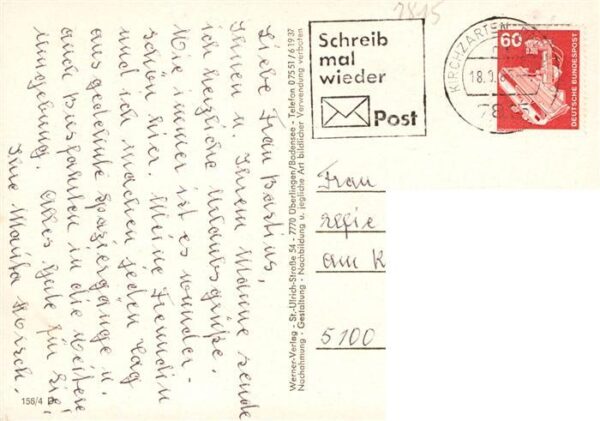 2815
Schreib
mal
wieder
Post
KIRCHZARTEN
18.
60
DEUTSCHE BUNDESPOST
Liebe Frau Bastius,
Ihnen u. Ihrem Manne sende
ich herzliche Urlaubsgrüße.
Wie immer ist es wunder-
schön hier. Meine Freundin
und ich machen jeden Tag
ausgedehnte Spaziergänge u.
auch Busfahrten in die weitere
Umgebung. Alles Gute für Sie!
Ihre Marita Kirsch.
Werner-Verlag - St.-Ulrich-Straße 54 - 7770 Überlingen/Bodensee - Telefon 07551/61937
Nachahmung - Gestaltung - Nachbildung u. jegliche Art bildlicher Verwendung verboten
Frau
am K
5100
156/4